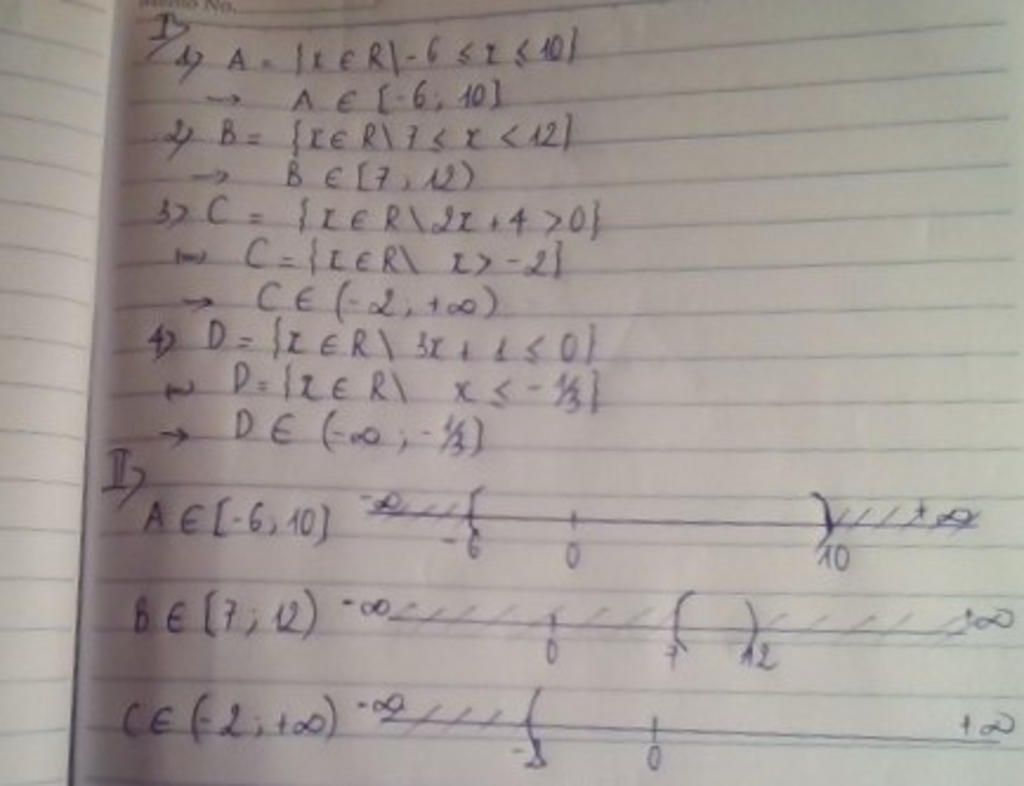 Memo No.
I>
1> A = {x ∈ R \ -6 ≤ x ≤ 10}
→ A ∈ [-6; 10]
2> B = {x ∈ R \ 7 ≤ x < 12}
→ B ∈ [7; 12)
3> C = {x ∈ R \ 2x + 4 > 0}
C = {x ∈ R \ x > -2}
→ C ∈ (-2; +∞)
4> D = {x ∈ R \ 3x + 1 ≤ 0}
D = {x ∈ R \ x ≤ -1/3}
→ D ∈ (-∞; -1/3]
II>
A ∈ [-6; 10] -∞ [ ) +∞
-6 0 10
B ∈ [7; 12) -∞ [ ) +∞
0 7 12
C ∈ (-2; +∞) -∞ ( +∞
-2 0